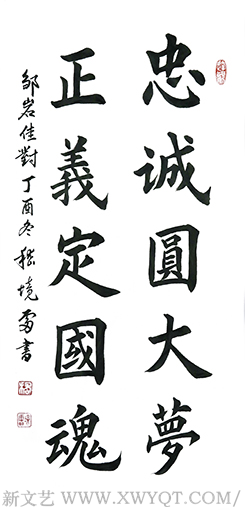 忠诚圓大夢
正義定國魂
邹岩佳對丁酉冬穆境雷書
新文艺 WWW.XWYQT.COM/